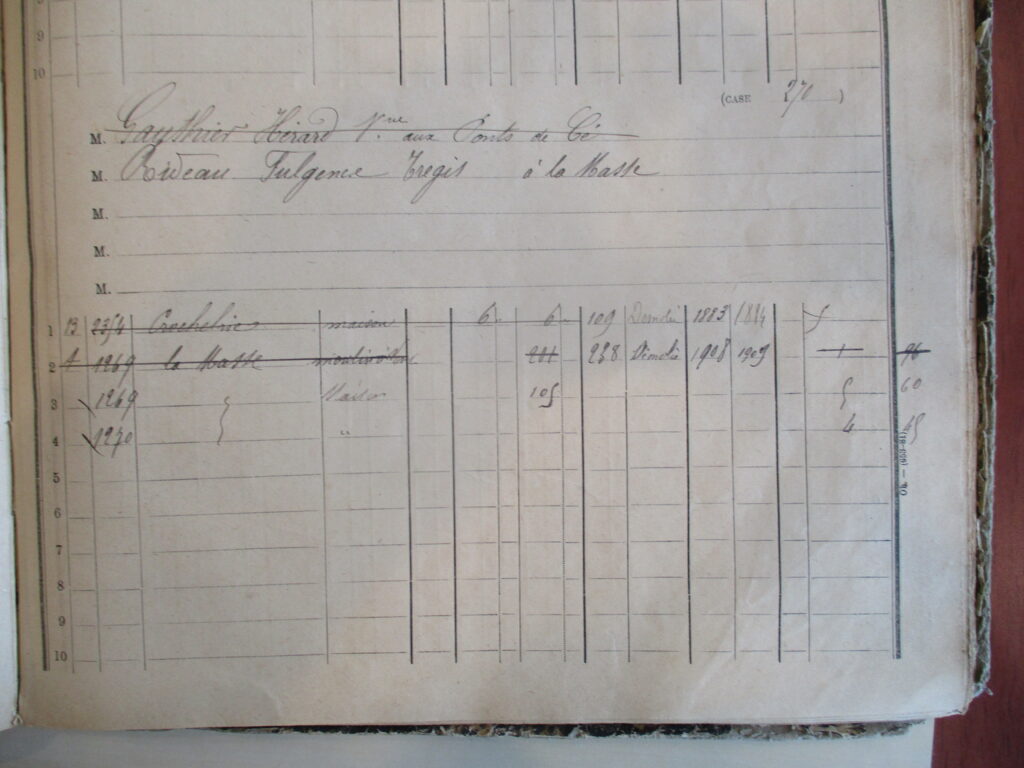 9
10
(CASE 270 )
M. Gauthier Hérard Vve aux Ponts de Cé
M. Rideau Fulgence Trégis à la Masse
M.
M.
M.
1 B 2354 maison 6 6 109 Démolie 1883 1884 5
2 A 1269 la Masse moulin à 201 238 Démolie 1908 1909 1 96
3 1269 Maison 105 5 60
4 1270 " 4 45
5
6
7
8
9
10